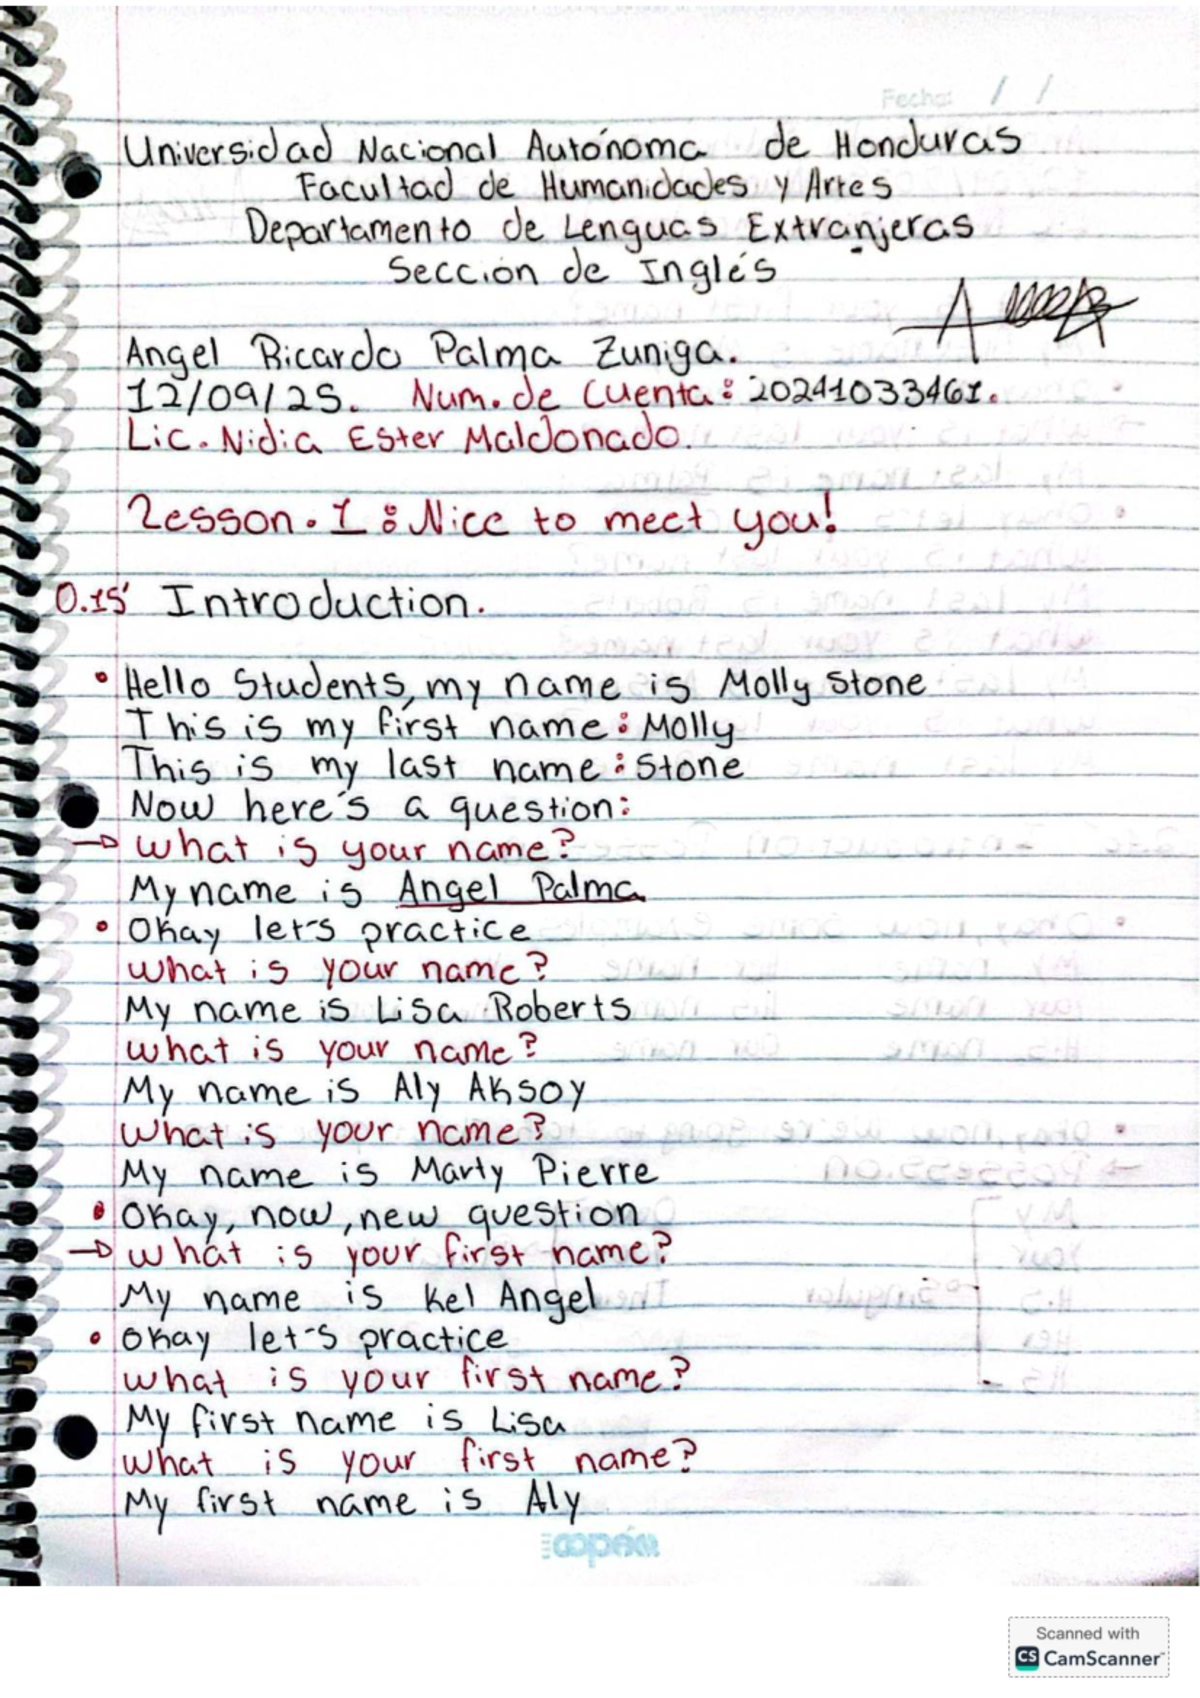 Fecha: / /
Universidad Nacional Autónoma de Honduras
Facultad de Humanidades y Artes
Departamento de Lenguas Extranjeras
Sección de Inglés
Angel Ricardo Palma Zuniga.
12/09/25. Num. de Cuenta: 20241033461.
Lic. Nidia Ester Maldonado.
Lesson. 1: Nice to meet you!
0.15' Introduction.
• Hello Students, my name is Molly Stone
This is my first name: Molly
This is my last name: Stone
Now here's a question:
→ What is your name?
My name is Angel Palma
• Okay let's practice
What is your name?
My name is Lisa Roberts
What is your name?
My name is Aly Aksoy
What is your name?
My name is Marty Pierre
• Okay, now, new question
→ What is your first name?
My name is Kel Angel
• Okay let's practice
What is your first name?
My first name is Lisa
What is your first name?
My first name is Aly
copán
Scanned with
CS CamScanner